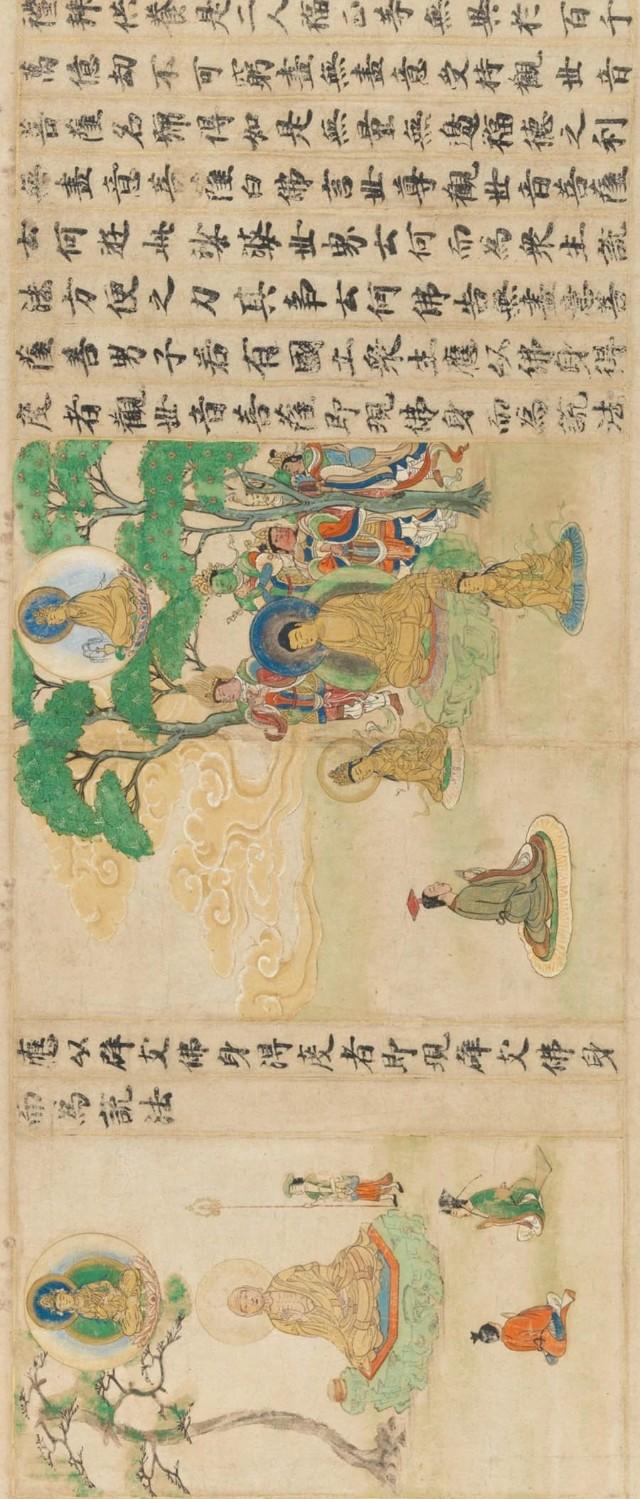 禮拜供養是二人福正等無異於百千
萬億劫不可窮盡無盡意受持觀世音
菩薩名號得如是無量無邊福德之利
無盡意菩薩白佛言世尊觀世音菩薩
云何遊此娑婆世界云何而為衆生說
法方便之力其事云何佛告無盡意菩
薩善男子若有國土衆生應以佛身得
度者觀世音菩薩即現佛身而為說法
應以辟支佛身得度者即現辟支佛身
而為說法